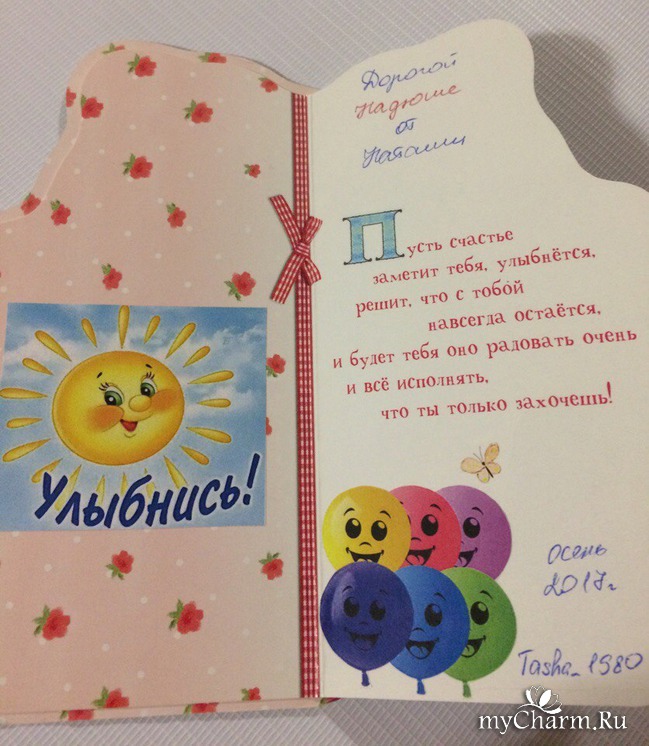 Улыбнись!
Дорогой
Надюше
от
Наташи
Пусть счастье
заметит тебя, улыбнётся,
решит, что с тобо́й
навсегда остаётся,
и будет тебя оно радовать очень
и всё исполнять,
что ты только захочешь!
осень
2017г
Tasha_1980
myCharm.Ru